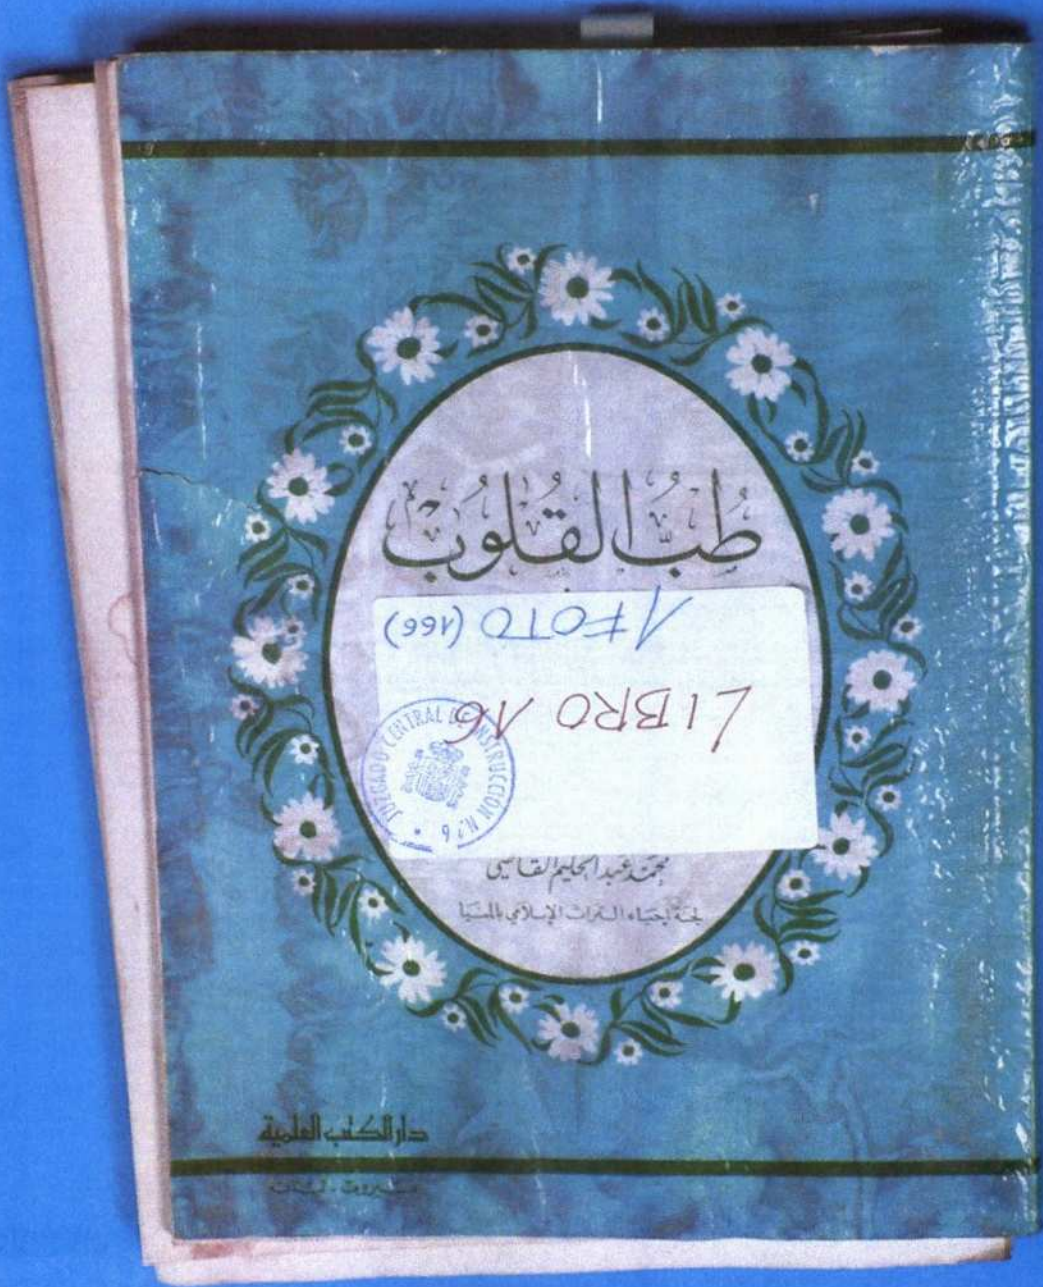 طِبُّ القُلُوبْ
1 FOTO (166)
LIBRO 16
JUZGADO CENTRAL DE INSTRUCCION N.º 6
محمد عبد الحليم القاضي
لجنة إحياء التراث الإسلامي بالمنيا
دار الكتب العلمية
بيروت - لبنان